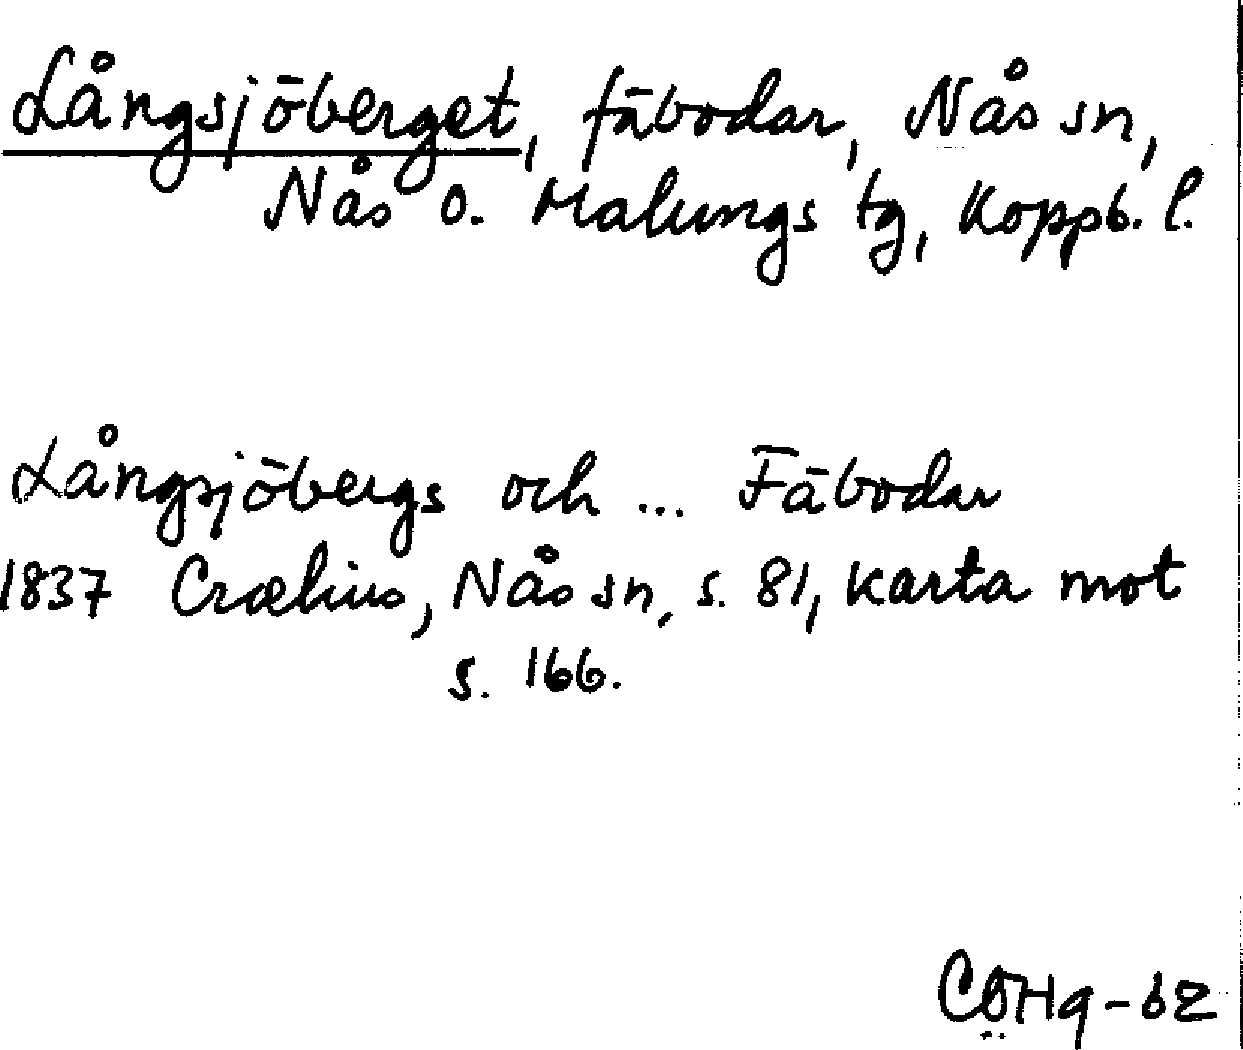 Långsjöberget, fäbodar, Nås sn,
Nås o. Malungs tg, Koppb. l.
Långsjöbergs och ... Fäbodar
1837 Crælius, Nås sn, s. 81, karta mot
s. 166.
CÖHq-62